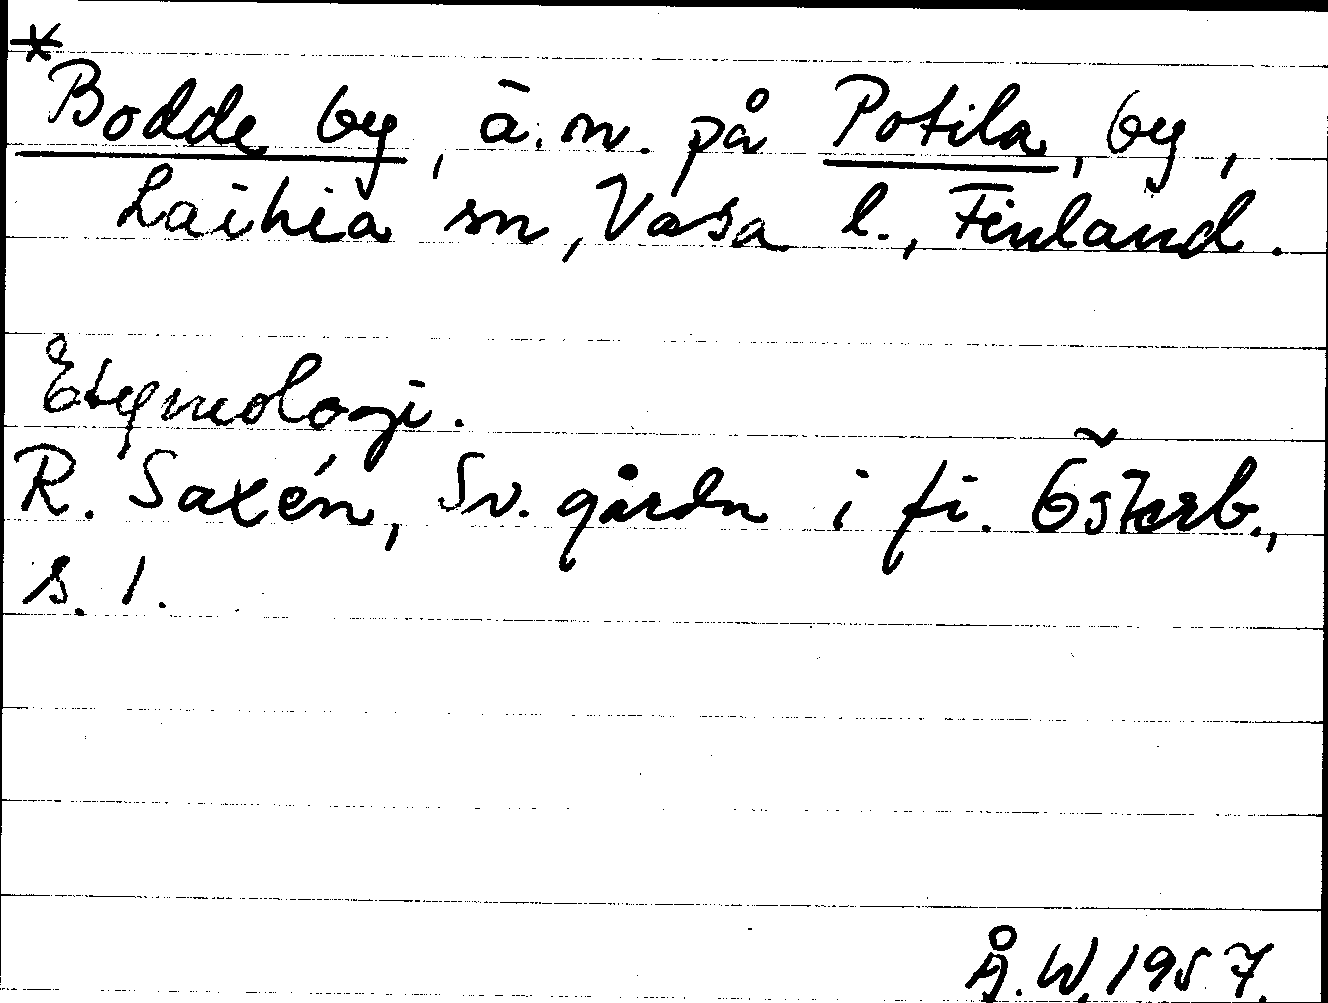 *Bodde by, ä. n. på Potila, by,
Laihia sn, Vasa l., Finland.
Etymologi.
R. Saxén, Sv. gårdn i fi. Österb.,
s. 1.
Å. W. 1957.